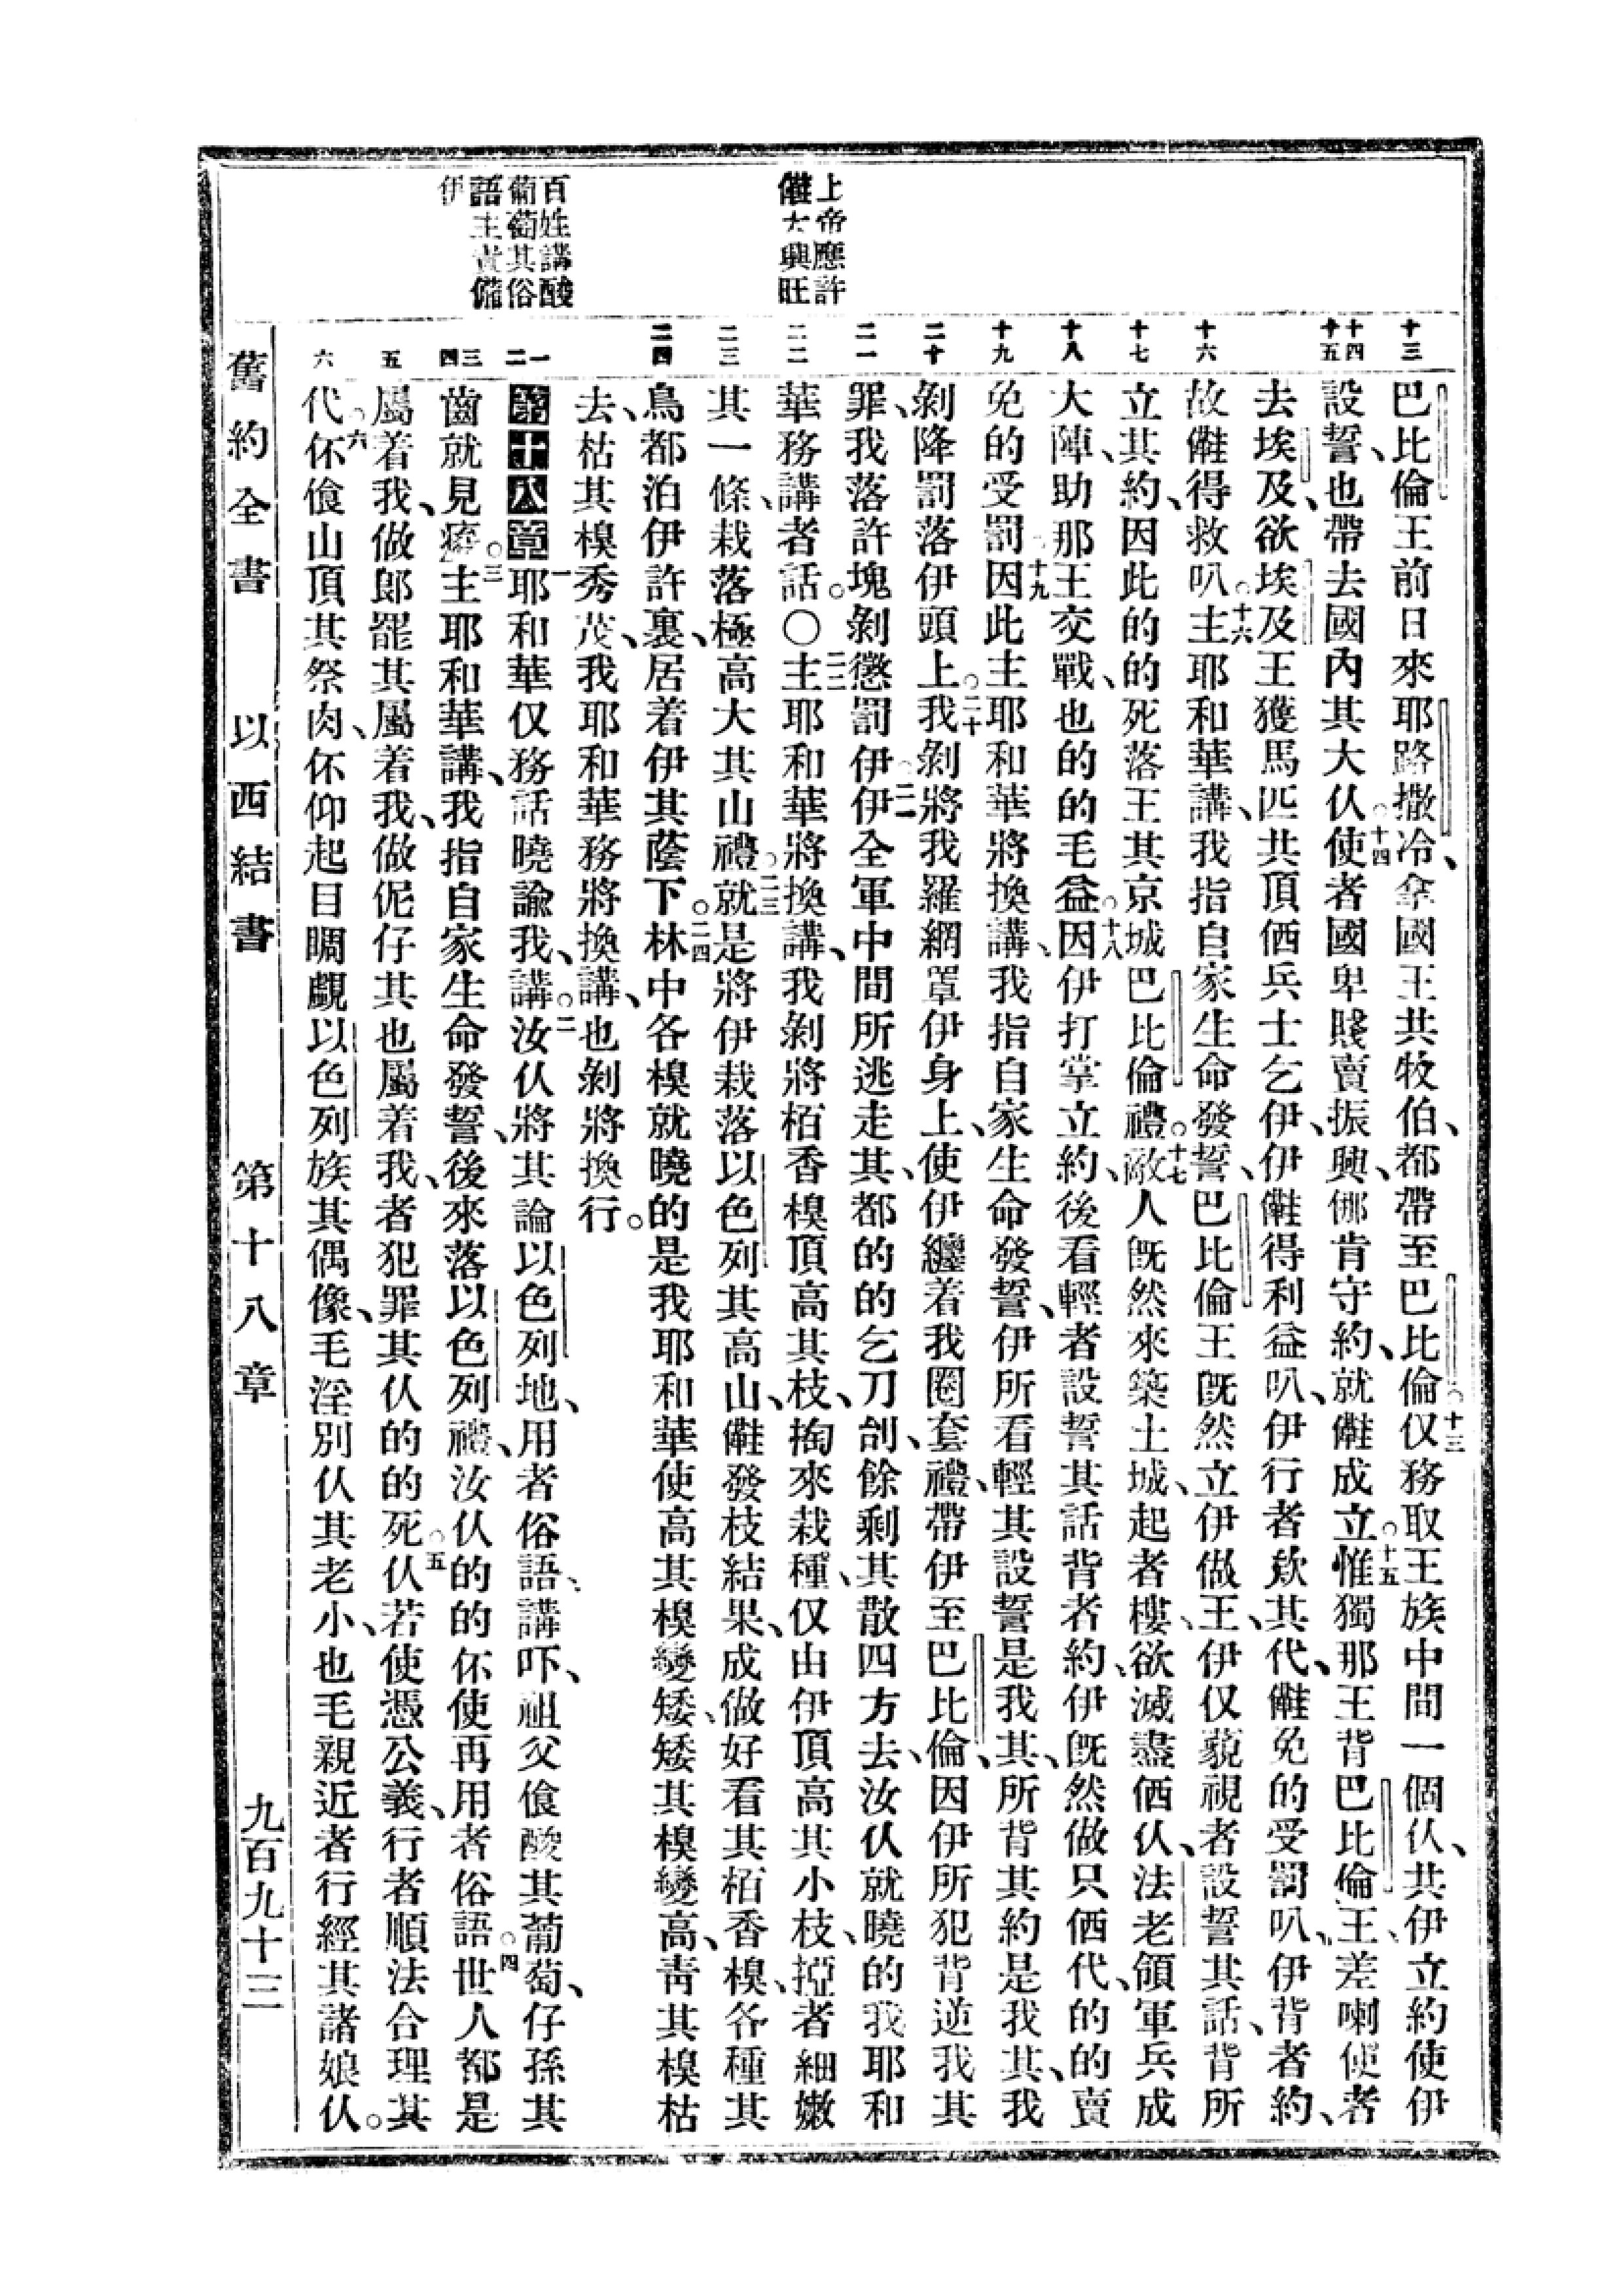 上帝應許
𠆧大興旺
百姓講酸
葡萄其俗
語主責備
伊
十三
十四
十五
十六
十七
十八
十九
二十
二一
二二
二三
二四
一
二
三
四
五
六
巴比倫王前日來耶路撒冷、拿國王共牧伯、都帶至巴比倫。十三仅務取王族中間一個仈、共伊立約使伊
設誓、也帶去國內其大仈。十四使者國卑賤賣振興、㑚肯守約、就𠆧成立。十五惟獨那王背巴比倫王、差喇使者
去埃及、欲埃及王獲馬匹共頂価兵士乞伊、伊𠆧得利益叭、伊行者欵其、代、𠆧免的受罰叭、伊背者約、
故𠆧得救叭。十六主耶和華講、我指自家生命發誓、巴比倫王旣然立伊做王、伊仅藐視者設誓其話、背所
立其約、因此的的死落王其京城巴比倫禮。十七敵人旣然來築土城、起者樓、欲滅盡価仈、法老領軍兵成
大陣、助那王交戰、也的的毛益。十八因伊打掌立約、後看輕者設誓其話背者約、伊旣然做只価代、的的賣
免的受罰。十九因此主耶和華將換講、我指自家生命發誓、伊所看輕其設誓是我其、所背其約是我其、我
剝降罰落伊頭上。二十我剝將我羅網罩伊身上、使伊纏着我圈套禮、帶伊至巴比倫、因伊所犯背逆我其
罪、我落許塊剝懲罰伊。二一伊全軍中間所逃走其、都的的乞刀刣、餘剩其散四方去、汝仈就曉的我耶和
華務講者話。〇二二主耶和華將換講、我剝將栢香模頂高其枝、掏來栽種、仅由伊頂高其小枝、掗者細嫩
其一條、栽落極高大其山禮。二三就是將伊栽落以色列其高山、𠆧發枝結果、成做好看其栢香模、各種其
鳥都泊伊許裏、居着伊其蔭下。二四林中各模就曉的是我耶和華使高其模變矮、矮其模變高、靑其模枯
去、枯其模秀茂、我耶和華務將換講、也剝將換行。
第十八章一耶和華仅務話曉諭我、講。二汝仈將其論以色列地、用者俗語、講吓、祖父飡酸其葡萄、仔孫其
齒就見痠。三主耶和華講、我指自家生命發誓、後來落以色列禮、汝仈的的伓使再用者俗語。四世人都是
屬着我、做郞罷其屬着我、做伲仔其也屬着我、者犯罪其仈的的死。五仈若使憑公義、行者順法合理其
代。六伓飡山頂其祭肉、伓仰起目瞯覷以色列族其偶像、毛淫別仈其老小、也毛親近者行經其諸娘仈。
舊約全書　以西結書　第十八章　九百九十三